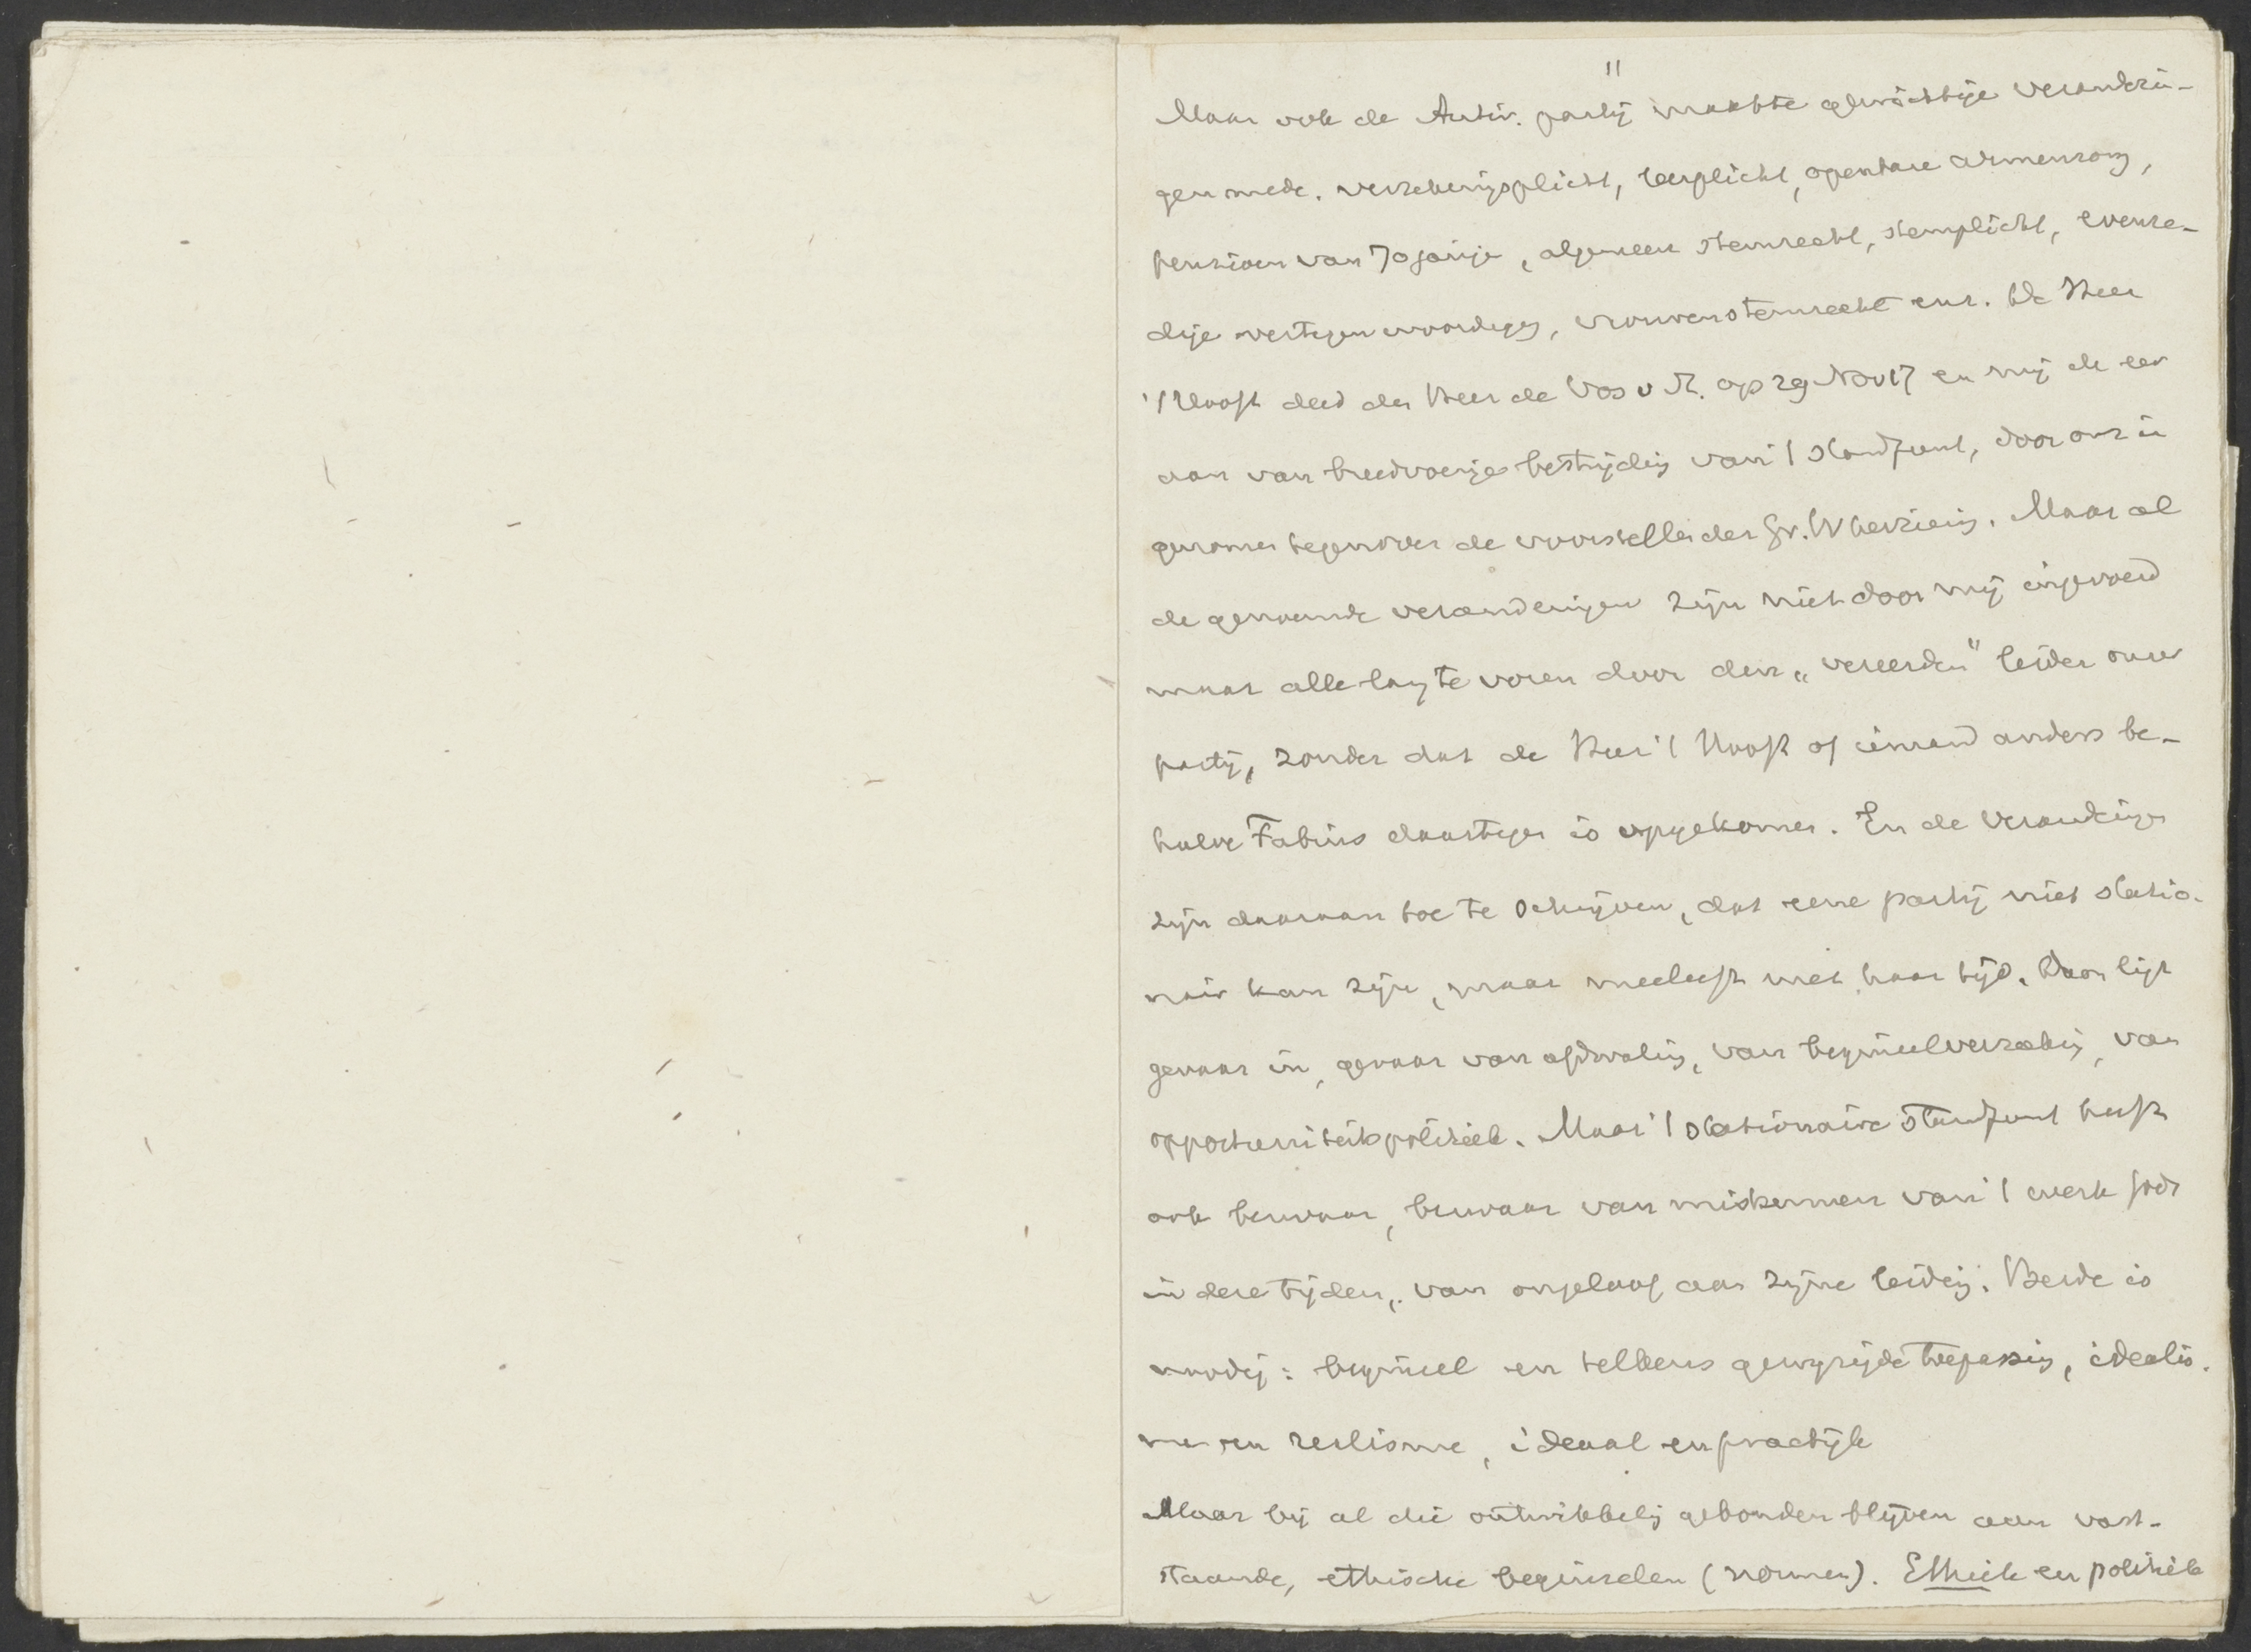 11
Maar ook de Antir. partij maakte gewichtige veranderin-
gen mede. verzekeringsplicht, leerplicht, openbare armenzorg,
pensioen van 70jarige, algemeen stemrecht, stemplicht, evenre-
dige vertegenwoordigg, vrouwenstemrecht enz. De Heer
't Hooft deed den Heer de Vos v St. op 29 Nov 17 en mij de eer
aan van breedvoerige bestrijding van 't standpunt, door ons in
genomen tegenover de voorstellen der Gr.W herziening. Maar al
de genoemde veranderingen zijn niet door mij ingevoerd
maar alle lang te voren door den „vereerden" leider onzer
partij, zonder dat de Heer 't Hooft of iemand anders be-
halve Fabius daartegen is opgekomen. En de veranderingen
zijn daaraan toe te schrijven, dat eene partij niet statio-
nair kan zijn, maar meeleeft met haar tijd. Daar ligt
gevaar in, gevaar van afdwaling, van beginselverzaking, van
opportuniteitspolitiek. Maar 't stationaire standpunt heeft
ook bezwaar, bezwaar van miskennen van 't werk Gods
in deze tijden, van ongeloof aan zijne leiding. Beide is
noodig: beginsel en telkens gewijzigde toepassing, idealis-
me en realisme, ideaal en practijk
Maar bij al die ontwikkeling gebonden blijven aan vast-
staande, ethische beginselen (normen). Ethiek en politiek